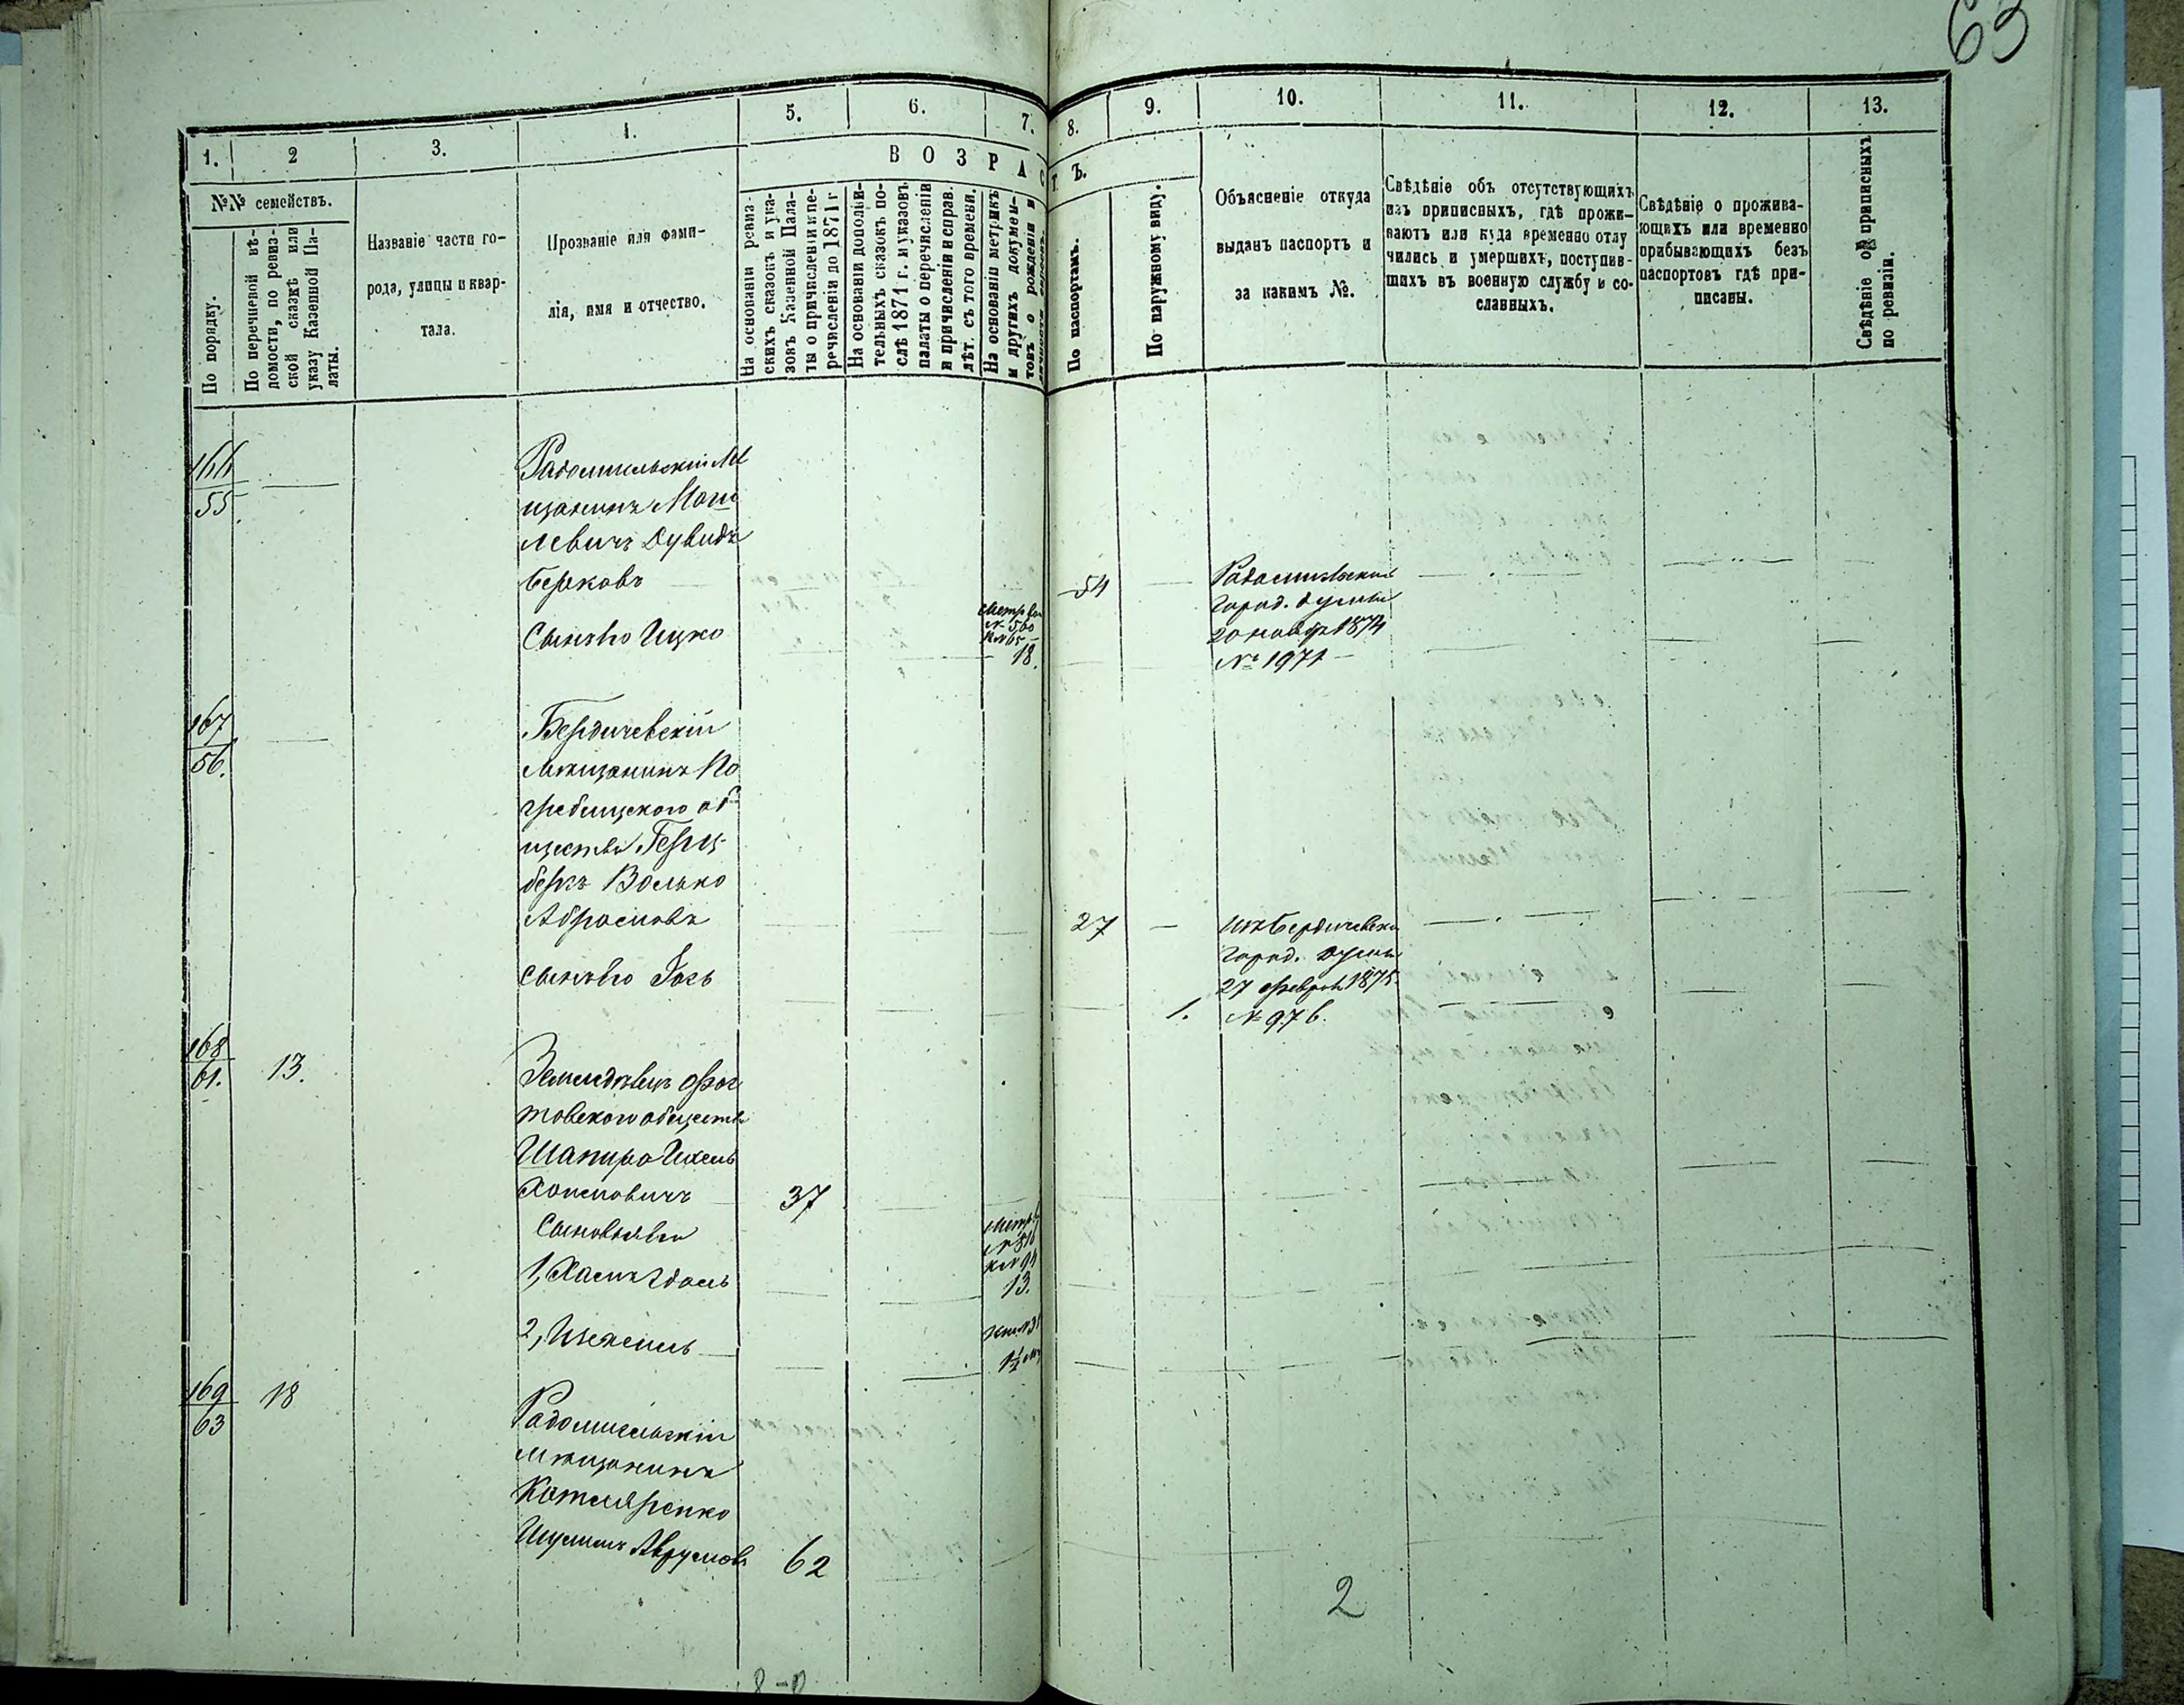 63
1. 2 3. 4. 5. 6. 7. 8. 9. 10. 11. 12. 13.
ВОЗРАСТЪ.
№№ семействъ.
По порядку.
По перечневой вѣ-
домости, по ревиз-
ской сказкѣ или
указу Казенной Па-
латы.
Названіе части го-
рода, улицы и квар-
тала.
Прозваніе или фами-
лія, имя и отчество.
На основаніи ревиз-
скихъ сказокъ и ука-
зовъ Казенной Пала-
ты о причисленіи и пе-
речисленіи до 1871 г
На основаніи дополни-
тельныхъ сказокъ по-
слѣ 1871 г. и указовъ
палаты о перечисленіи
и причисленіи и справ.
лѣт. съ того времени.
На основаніи метрикъ
и другихъ докумен-
товъ о рожденіи и
По паспортамъ.
По наружному виду.
Объясненіе откуда
выданъ паспортъ и
за какимъ №.
Свѣдѣніе объ отсутствующихъ
изъ приписныхъ, гдѣ прожи-
ваютъ или куда временно отлу
чились и умершихъ, поступив-
шихъ въ военную службу и со-
сланныхъ.
Свѣдѣніе о прожива-
ющихъ или временно
прибывающихъ безъ
паспортовъ гдѣ при-
писаны.
Свѣдѣніе объ приписныхъ
по ревизіи.
166
55
Радомисльскій Мѣ
щанинъ Моги
левичъ Дувидъ
Берковъ
54
Радомисльской
город. думы
20 ноябр 1874
№ 1971
Сынъ его Ицко
№ 560
18.
167
56.
Бердичевскій
мѣщанинъ По
гребищскаго об
щества Герц-
беръ Волько
Абрамовъ
27
Изъ Бердичевской
город. думы
27 феврал 1875
№ 976.
Сынъ его Іось
1.
168
61.
13.
Земледѣлецъ
товскаго общества
Шапиро Ихель
Хаимовичъ
37
Сыновья его
1, Хаимъ Эдаль
13.
2,
169
63
18
Радомисльскій
мѣщанинъ
Котляренко
Шулимъ Аврумовъ
62
2